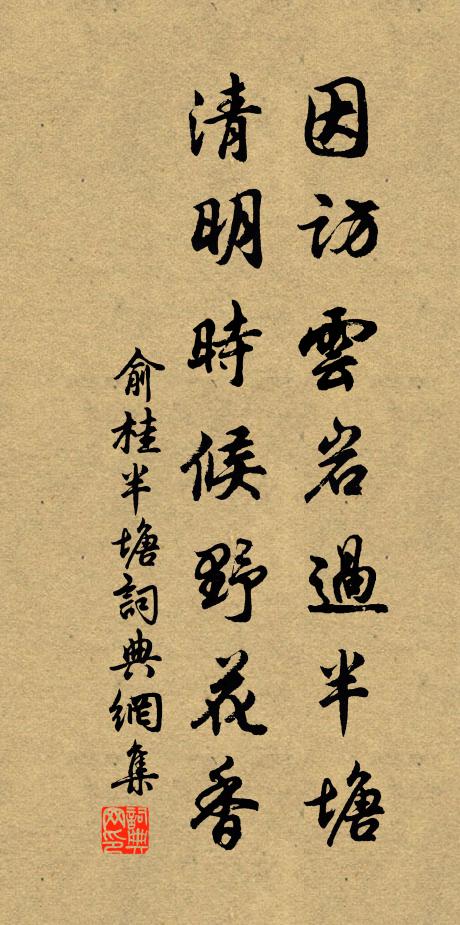 因訪雲岩過半塘
清明時候野花香
俞桂半塘詞典網集
詞典網印